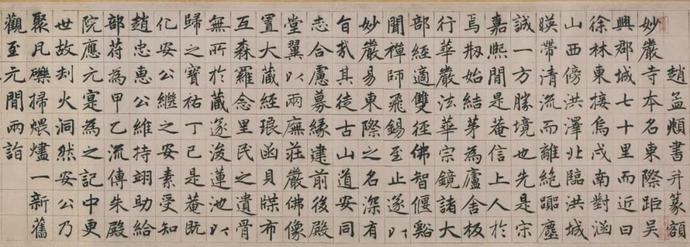 趙孟頫書并篆額
妙嚴寺本名東際距吳
興郡城七十里而近曰
徐林東接烏戍南對涵
山西傍洪澤北臨洪城
暎帶清流而離絕嚻塵
誠一方勝境也先是宋
嘉熙間是菴信上人於
焉剏始結茅為廬舍板
行華嚴法華宗鏡諸大
部經適雙徑佛智偃谿
聞禪師飛錫至止遂以
妙嚴易東際之名深有
旨哉其徒古山道安同
志合慮募緣建前後殿
堂翼以兩廡莊嚴佛像
置大藏經琅函貝牒布
互森羅念里民之遺骨
無所於藏遂浚蓮池以
歸之寶祐丁巳是菴既
化安公繼之安素受知
趙忠惠公維持翊助給
部符為甲乙流傳朱殿
院應元寔為之記中更
世故劫火洞然安公乃
聚凡礫掃煨燼一新舊
觀至元間兩詣